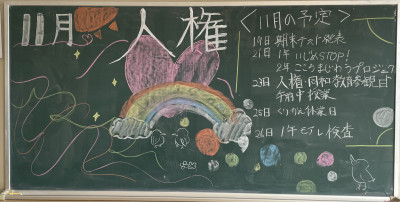 11月 人権
＜11月の予定＞
19日 期末テスト発表
21日 1年 いじめSTOP!
2年 こころまじわうプロジェクト
23日 人権・同和教育参観日
午前中授業
25日 くりかえ休業日
26日 1年モアレ検査